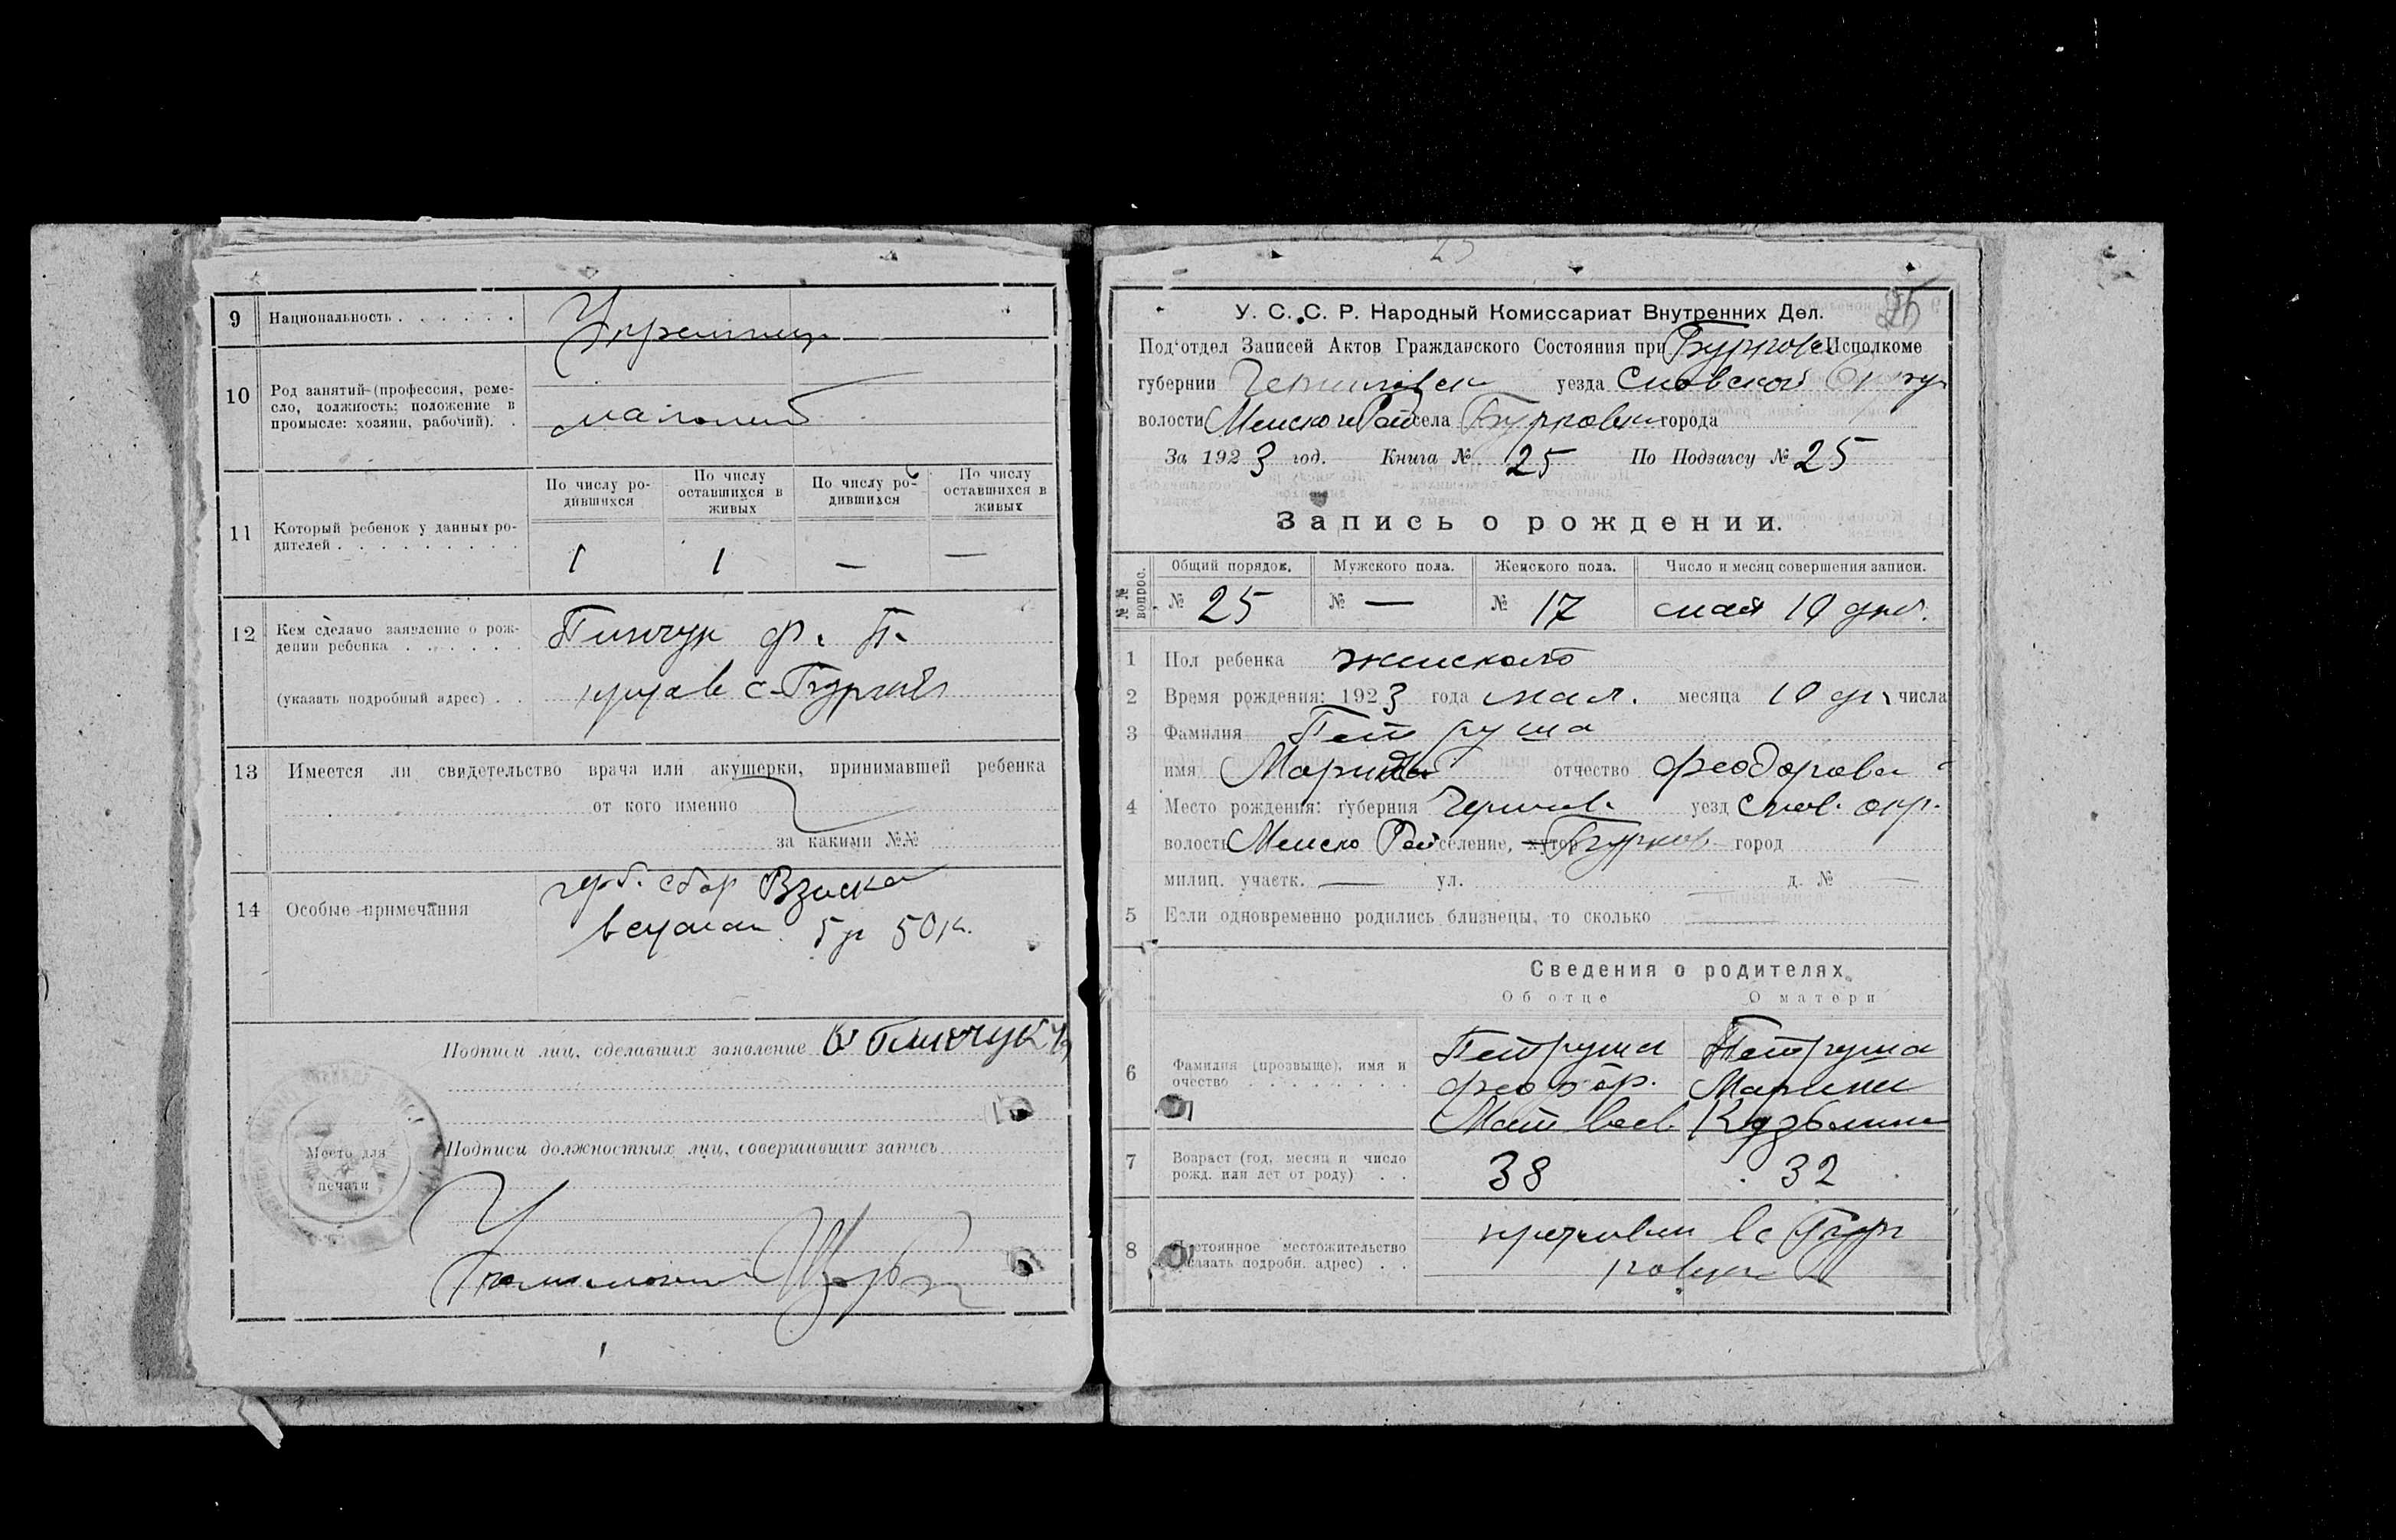 9 Национальность . . . . . .
10 Род занятий (профессия, реме-
сло, должность; положение в
промысле: хозяин, рабочий). .
По числу ро-
дившихся
По числу
оставшихся в
живых
По числу ро-
дившихся
По числу
оставшихся в
живых
11 Который ребенок у данных ро-
дителей . . . . . . . . .
1 1 — —
12 Кем сделано заявление о рож-
дении ребенка . . . . . . Пинчук Ф. П.
(указать подробный адрес) . .
13 Имеется ли свидетельство врача или акушерки, принимавшей ребенка
от кого именно
за какими №№
14 Особые примечания герб. сбор Взиска
5 р 50 к.
Подписи лиц, сделавших заявление Пинчук
Подписи должностных лиц, совершивших запись
Место для
печати
25
У. С. С. Р. Народный Комиссариат Внутренних Дел.
Под'отдел Записей Актов Гражданского Состояния при Бурковс Исполкоме
губернии уезда Сновской
волости села города
За 1923 год. Книга № 25 По Подзагсу № 25
Запись о рождении.
№ № вопрос.
Общий порядок. Мужского пола. Женского пола. Число и месяц совершения записи.
№ 25 № — № 17 мая 10 дня.
1 Пол ребенка женского
2 Время рождения: 1923 года мая. месяца 10 дн. числа
3 Фамилия Петруша
имя отчество Феодорова
4 Место рождения: губерния Чернигов. уезд Снов. окр.
волость Менско Рай селение, хутор Бурков город
милиц. участк. — ул. д. № —
5 Если одновременно родились близнецы, то сколько —
Сведения о родителях
Об отце О матери
6 Фамилия (прозвыще), имя и
очество . . . . . . . . .
Петруша Петруша
Феодор. Марина
Матвеев. Кузьмин
7 Возраст (год, месяц и число
рожд. или лет от роду) . .
38 32
8 Постоянное местожительство
(указать подробн. адрес) . .